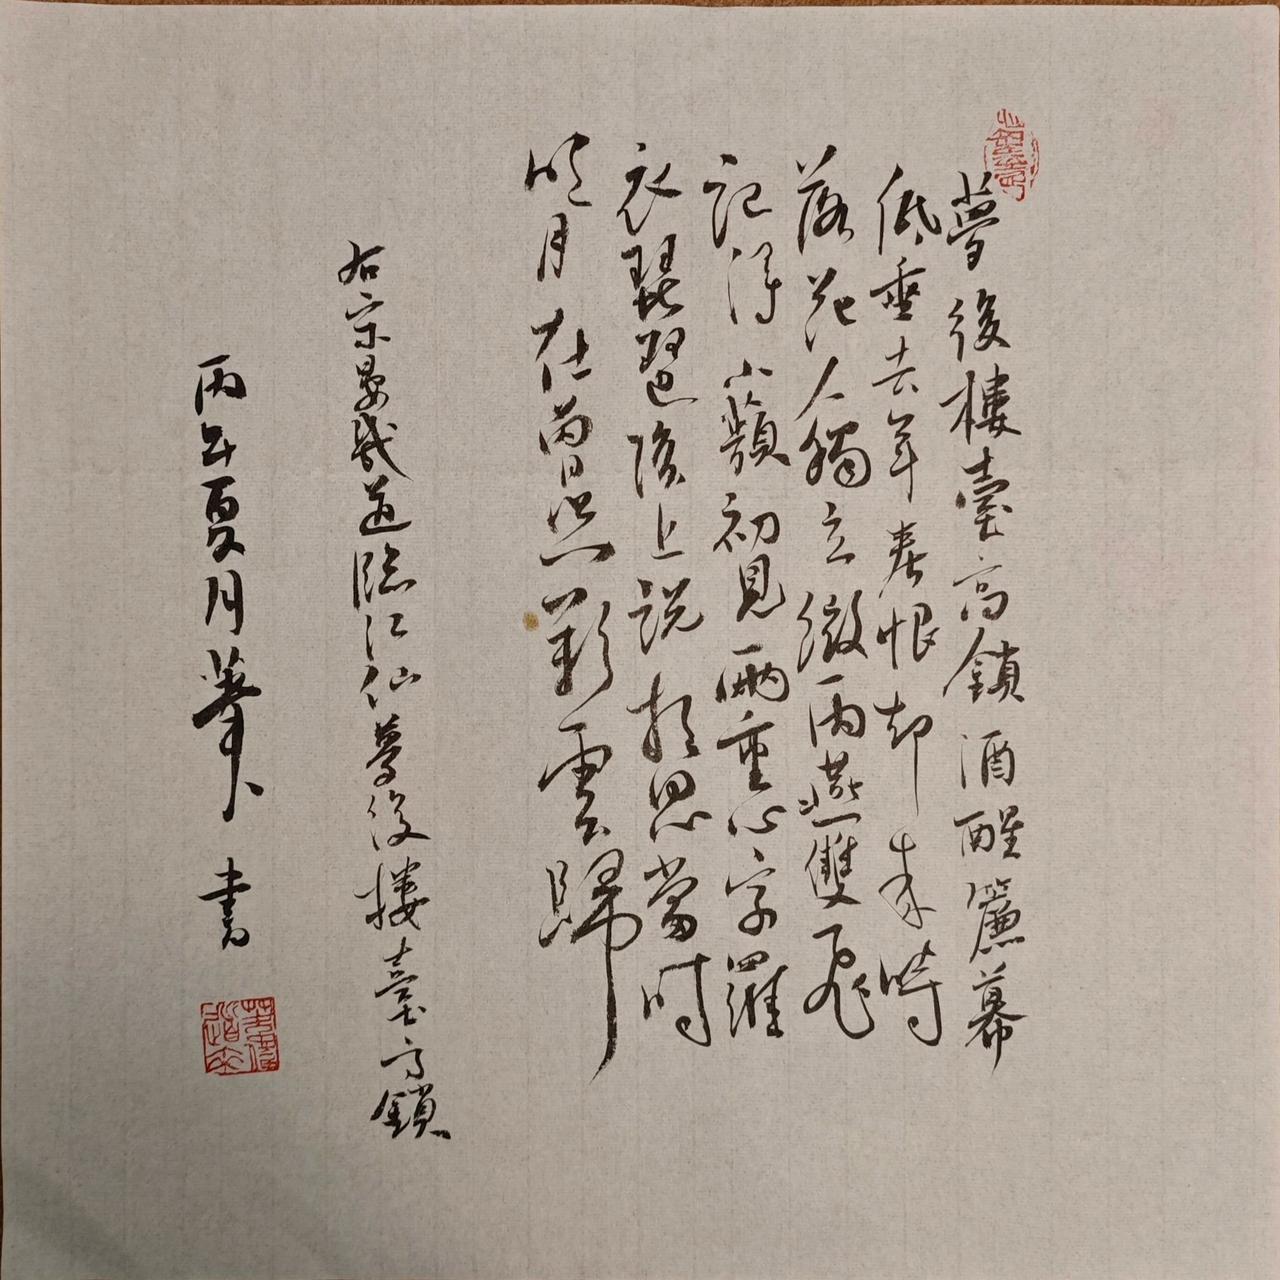 夢後樓臺高鎖酒醒簾幕
低垂去年春恨却來時
落花人獨立微雨燕雙飛
記得小蘋初見兩重心字羅
衣琵琶弦上説相思當時
明月在曾照彩雲歸
右宋晏幾道臨江仙夢後樓臺高鎖
丙午夏月 書